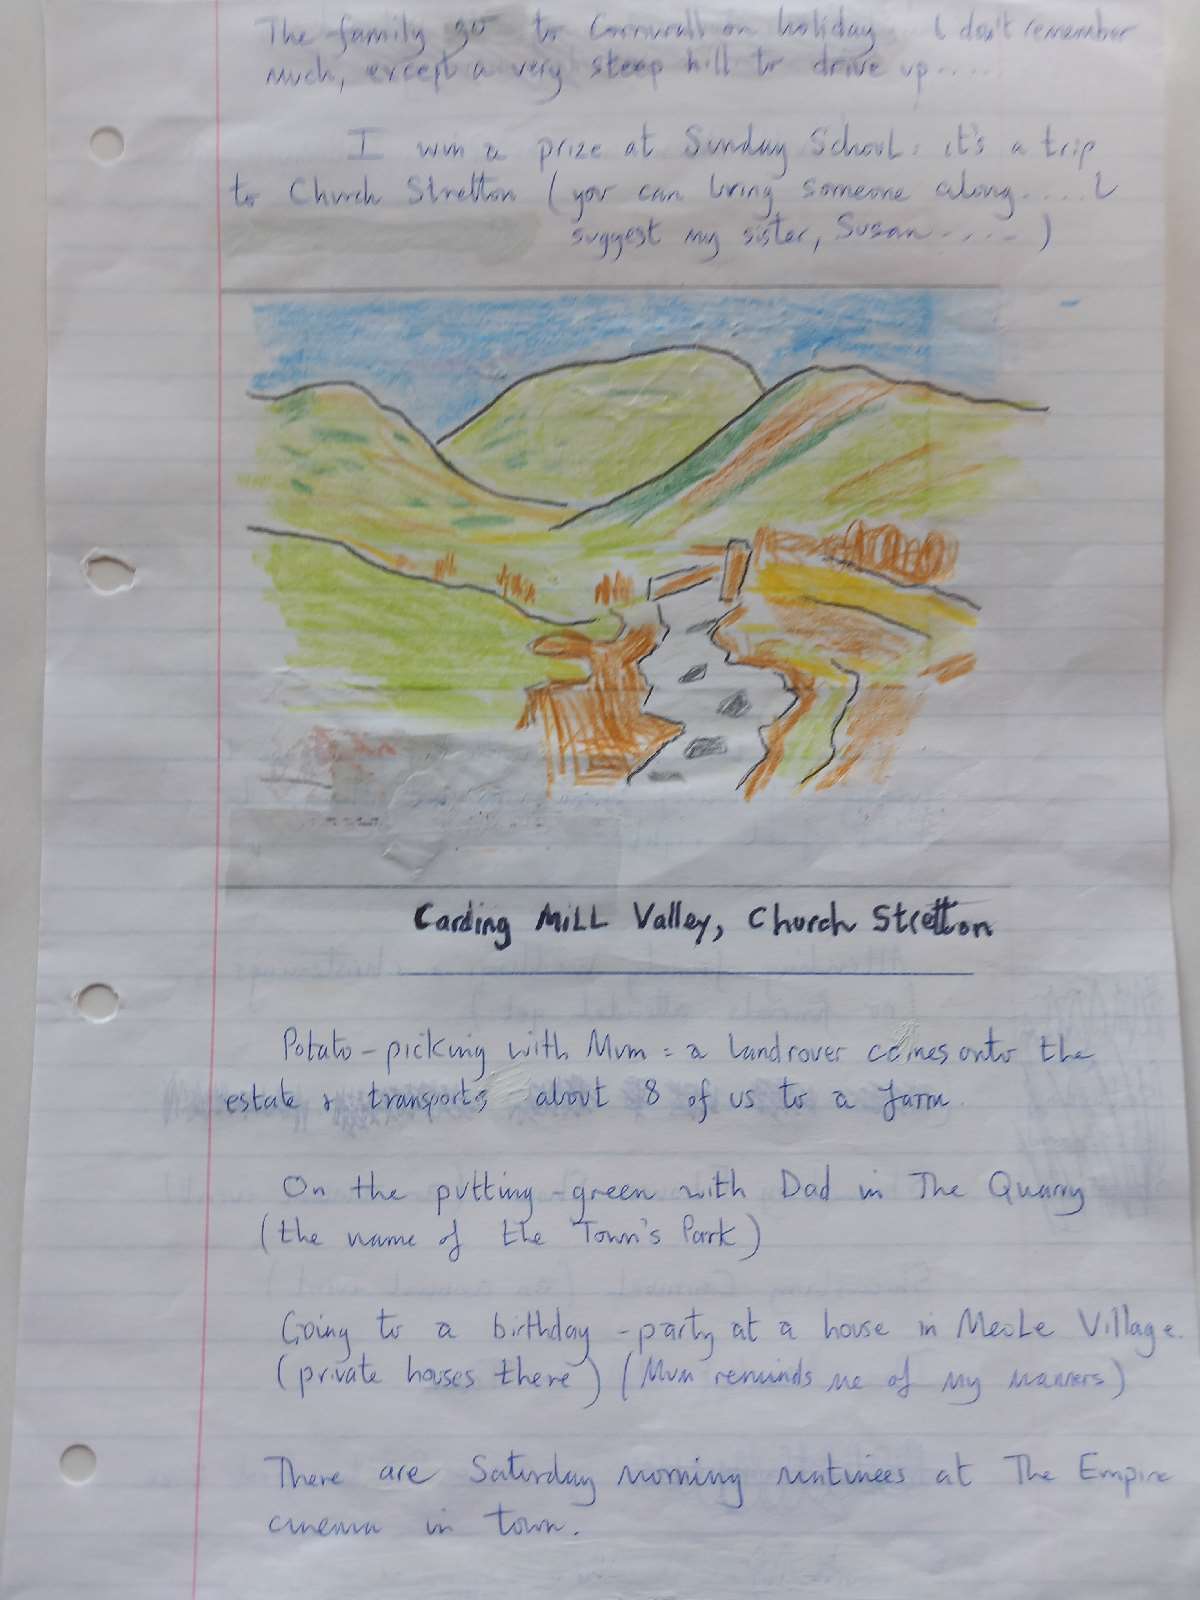 The family go to Cornwall on holiday. I don't remember
much, except a very steep hill to drive up....
I win a prize at Sunday School: it's a trip
to Church Stretton (you can bring someone along.....I
suggest my sister, Susan.....)
Carding Mill Valley, Church Stretton
Potato-picking with Mum = a landrover comes onto the
estate & transports about 8 of us to a farm.
On the putting-green with Dad in The Quarry
(the name of the Town's Park)
Going to a birthday-party at a house in Meole Village.
(private houses there) (Mum reminds me of my manners)
There are Saturday morning matinees at The Empire
cinema in town.